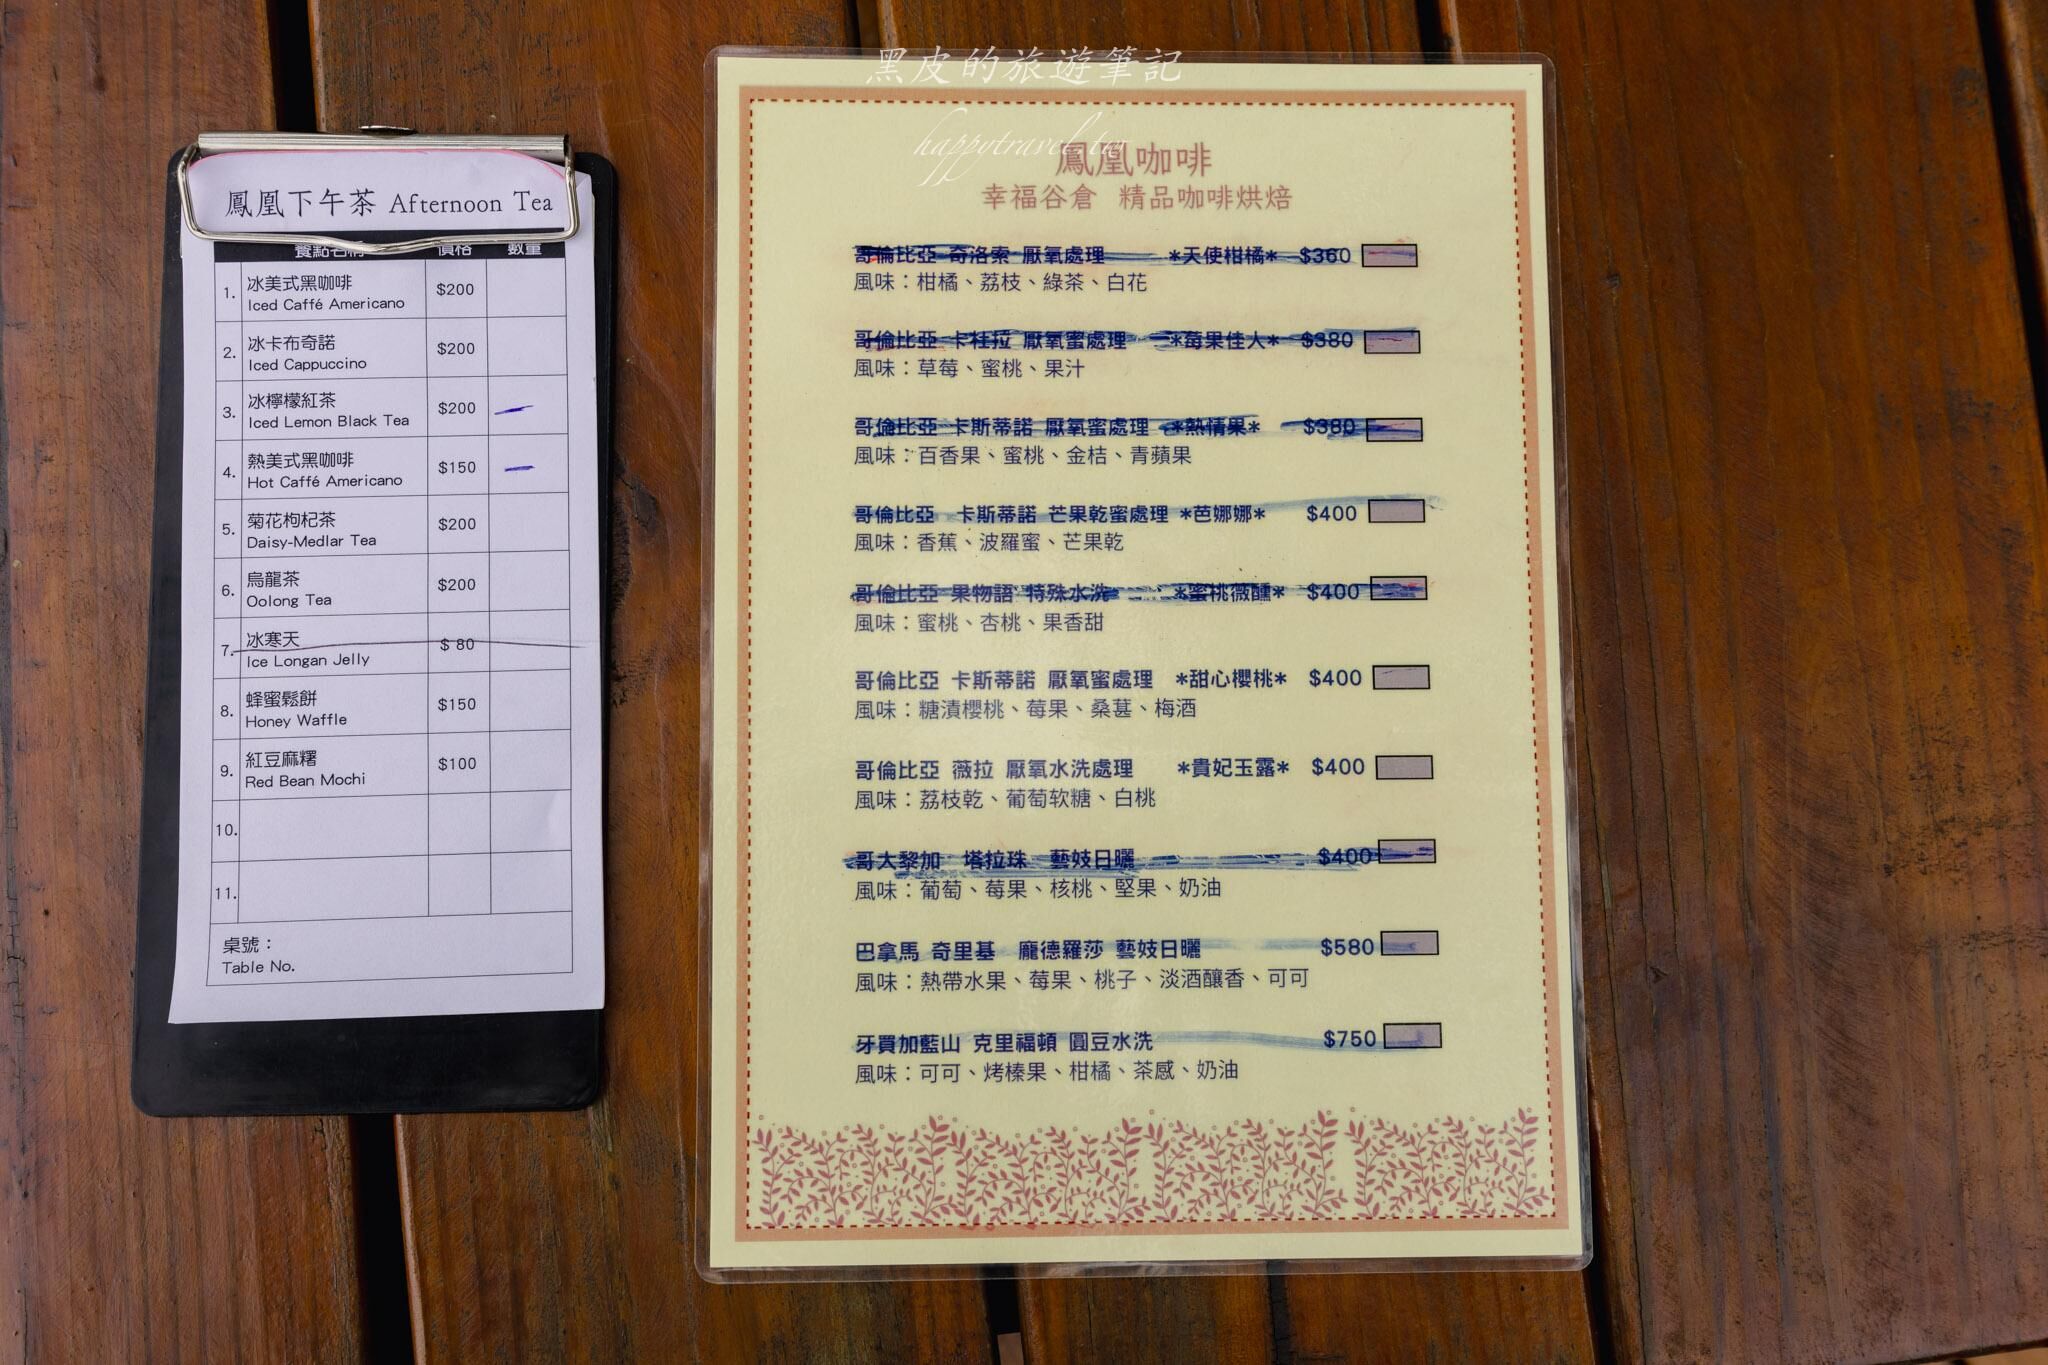 黑皮的旅遊筆記
happytravel.tw
鳳凰下午茶 Afternoon Tea
餐點名稱 價格 數量
1. 冰美式黑咖啡 $200
Iced Caffé Americano
2. 冰卡布奇諾 $200
Iced Cappuccino
3. 冰檸檬紅茶 $200
Iced Lemon Black Tea
4. 熱美式黑咖啡 $150
Hot Caffé Americano
5. 菊花枸杞茶 $200
Daisy-Medlar Tea
6. 烏龍茶 $200
Oolong Tea
7. 冰寒天 $ 80
Ice Longan Jelly
8. 蜂蜜鬆餅 $150
Honey Waffle
9. 紅豆麻糬 $100
Red Bean Mochi
10.
11.
桌號：
Table No.
鳳凰咖啡
幸福谷倉 精品咖啡烘焙
哥倫比亞 奇洛索 厭氧處理 *天使柑橘* $360
風味：柑橘、荔枝、綠茶、白花
哥倫比亞 卡杜拉 厭氧蜜處理 *莓果佳人* $380
風味：草莓、蜜桃、果汁
哥倫比亞 卡斯蒂諾 厭氧蜜處理 *熱情果* $380
風味：百香果、蜜桃、金桔、青蘋果
哥倫比亞 卡斯蒂諾 芒果乾蜜處理 *芭娜娜* $400
風味：香蕉、波羅蜜、芒果乾
哥倫比亞 果物語 特殊水洗 *蜜桃薇醺* $400
風味：蜜桃、杏桃、果香甜
哥倫比亞 卡斯蒂諾 厭氧蜜處理 *甜心櫻桃* $400
風味：糖漬櫻桃、莓果、桑葚、梅酒
哥倫比亞 薇拉 厭氧水洗處理 *貴妃玉露* $400
風味：荔枝乾、葡萄软糖、白桃
哥大黎加 塔拉珠 藝妓日曬 $400
風味：葡萄、莓果、核桃、堅果、奶油
巴拿馬 奇里基 龐德羅莎 藝妓日曬 $580
風味：熱帶水果、莓果、桃子、淡酒釀香、可可
牙買加藍山 克里福頓 圓豆水洗 $750
風味：可可、烤榛果、柑橘、茶感、奶油